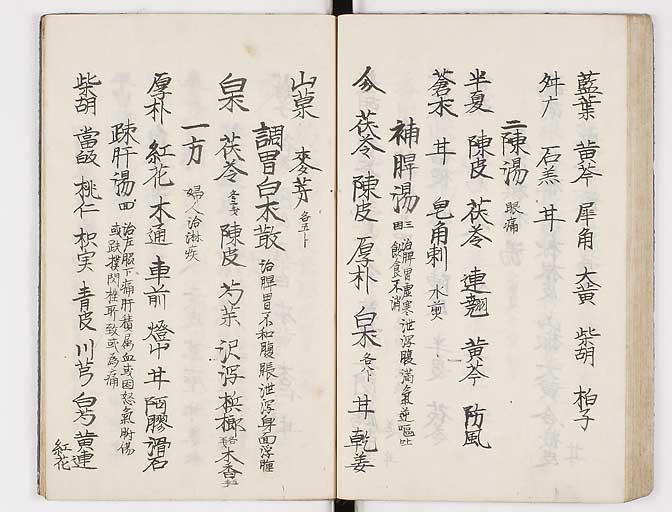 藍葉 黄芩 犀角 大黄 柴胡 栢子
舛广 石羔 井
二陳湯 眼痛
半夏 陳皮 茯苓 連翹 黄芩 防風
蒼朮 井 皂角刺 水煎
補脾湯 三因 治脾胃虚寒泄瀉腹満氣逆嘔吐飲食不消
茯苓 陳皮 厚朴 白朮 各 井 乾姜
山菓 麥芽 各五卜
調胃白朮散 治脾胃不和腹脹泄瀉身面浮腫
白朮 茯苓 陳皮 芍薬 沢瀉 梹榔 木香
一方 婦人治淋疾
厚朴 紅花 木通 車前 燈中 井 阿膠 滑石
疎肝湯 治左脇下痛肝積属血或因怒氣所傷或跌撲閃挫所致或為痛
柴胡 當皈 桃仁 枳実 青皮 川芎 白芍 黄連 紅花